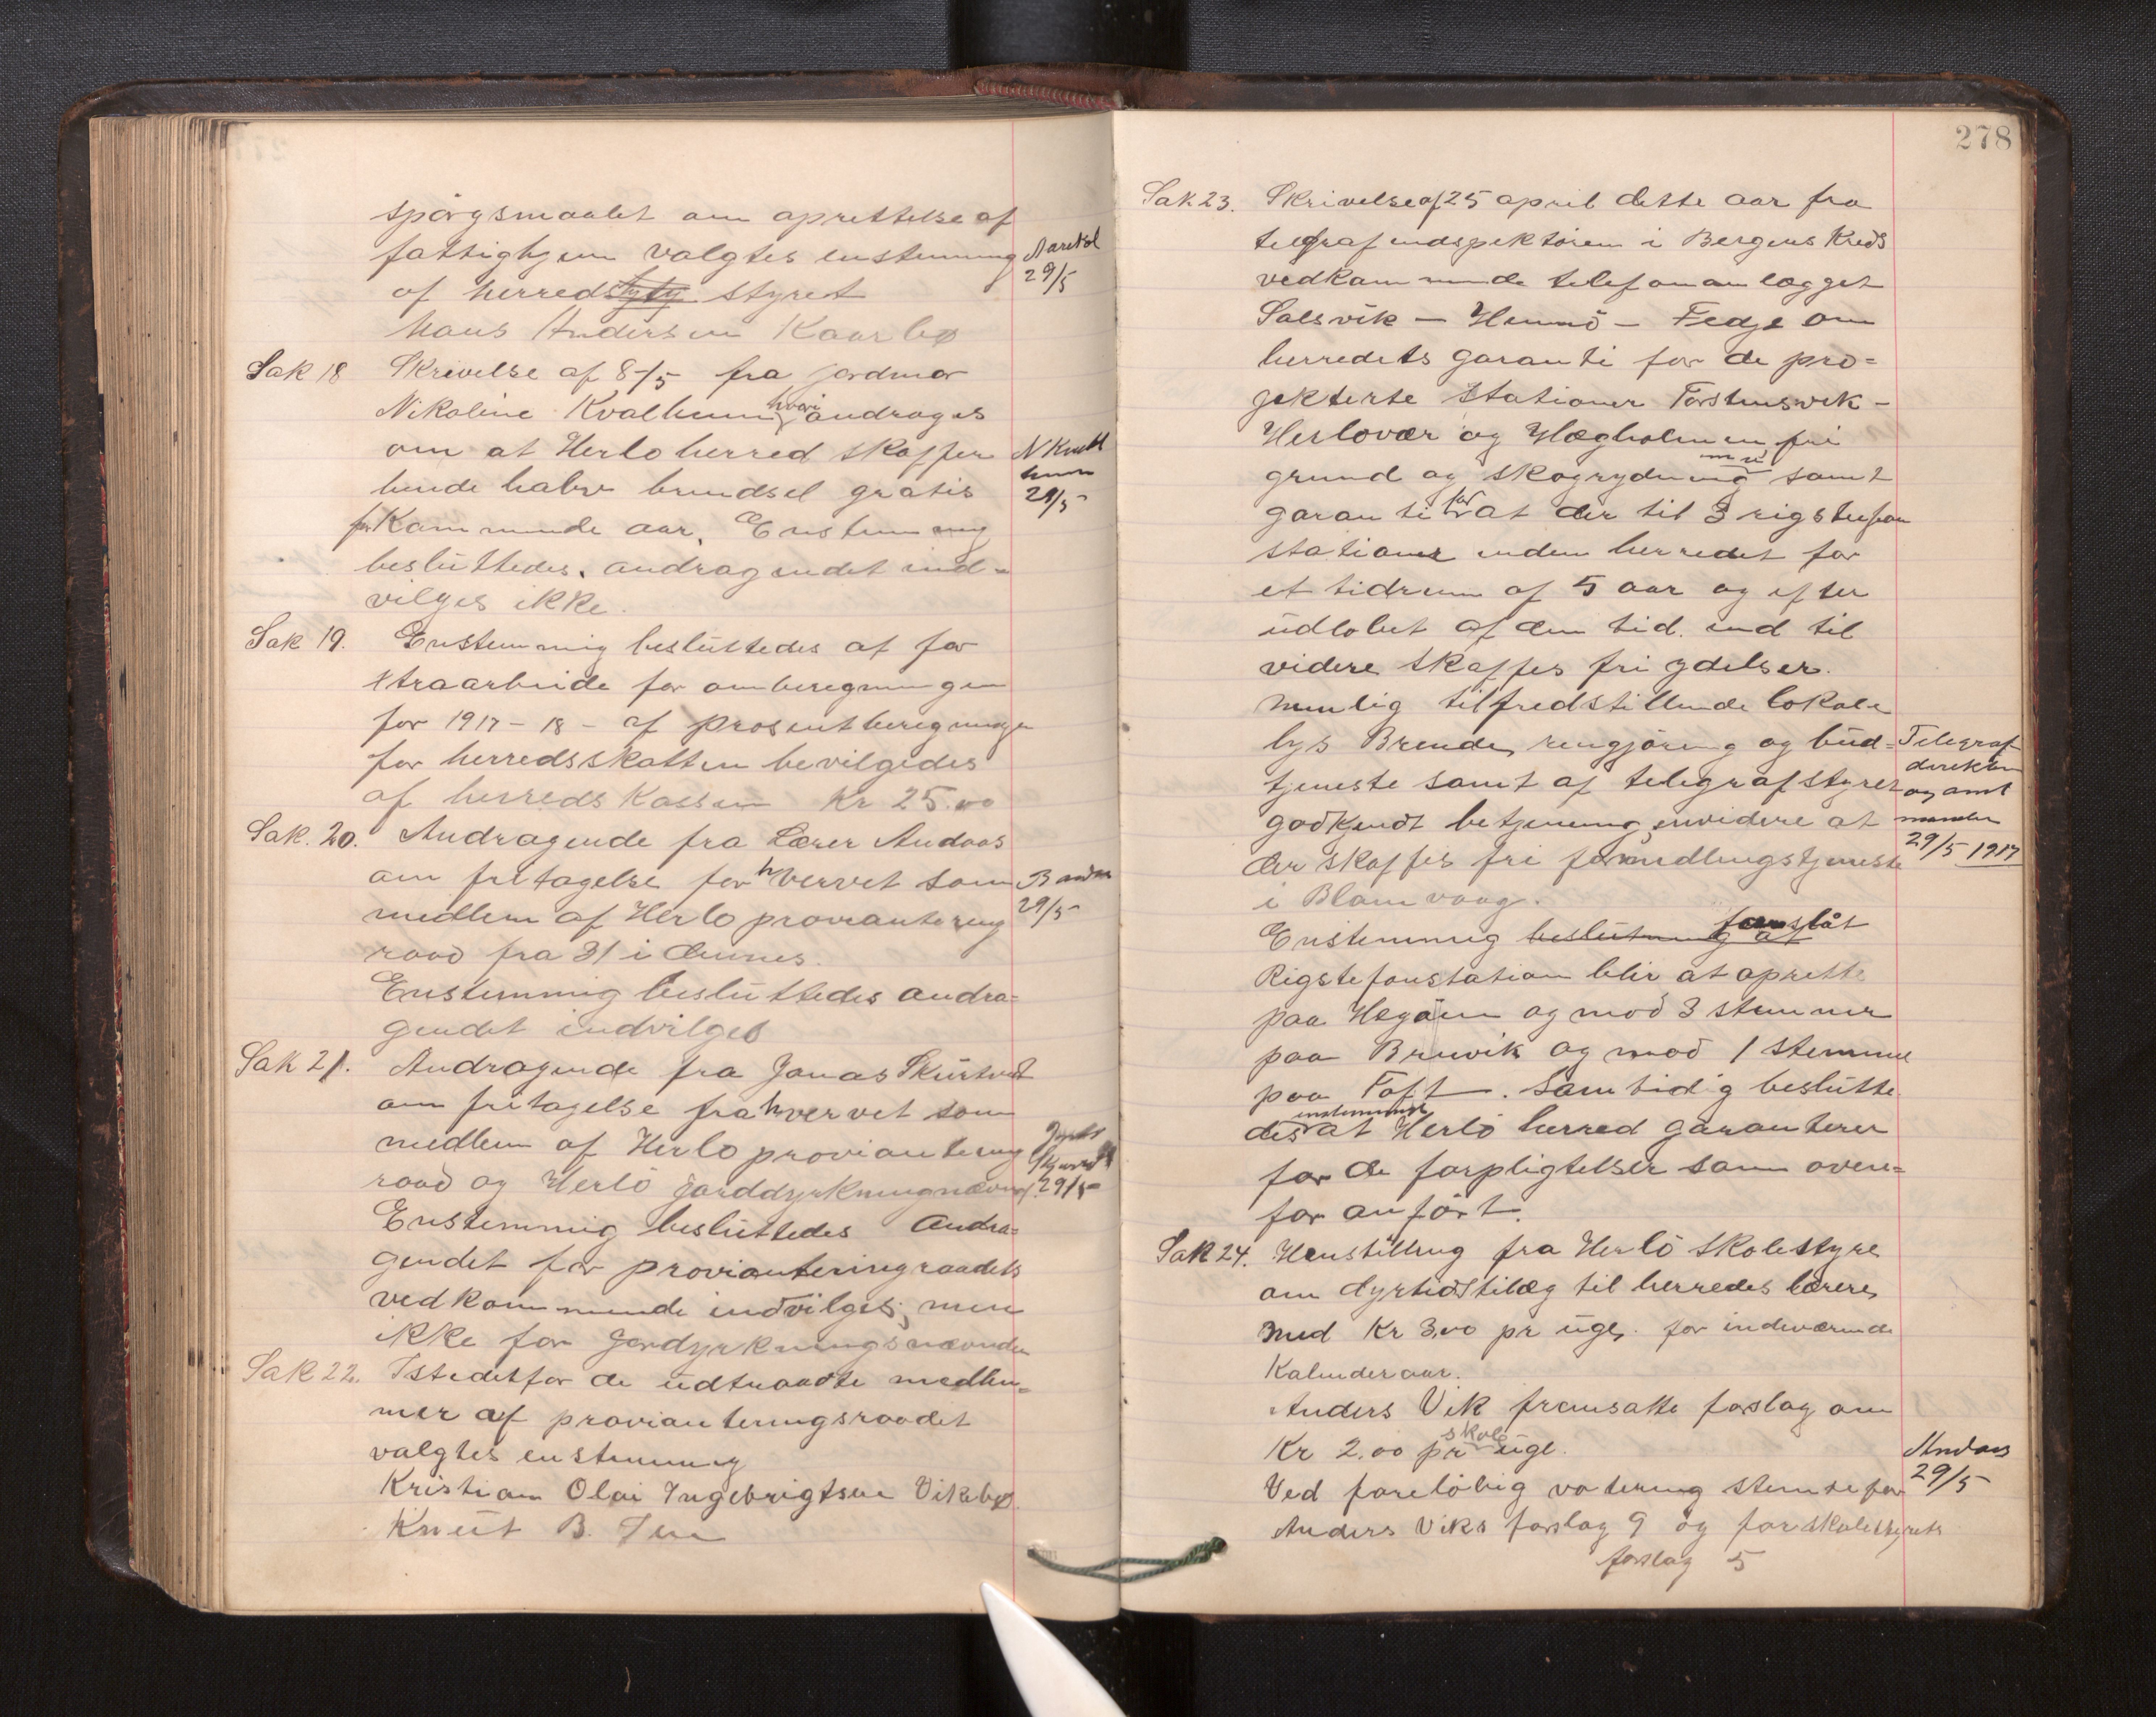 spörgsmaalet om oprettelse af
fattighjem valgtes enstemmig
29/5
af herreds styty styret
Hans Andersen Kaarbø
Sak 18 Skrivelse af 8/5 fra jordmor
Nikoline Kvalheim hvori andrages
om at Herlo herred skaffer
N Kvalheim
29/5
hende halve brendsel gratis
for kommende aar. Enstemmig
besluttedes. andragendet ind-
vilges ikke.
Sak 19. Enstemmig besluttedes at for
straarbeide for omberegningen
for 1917-18 - af prosentberegningen
for herredsskatten bevilgedes
af herredskassen Kr 25.00
Sak. 20. Andragende fra Lærer Andaas
om fritagelse for hvervet som
29/5
medlem af Herlo provianterings
raad fra 31 i dennes.
Enstemmig besluttedes andra-
gendet indvilges
Sak 21. Andragende fra Jonas Skurtveit
om fritagelse fra hvervet som
medlem af Herlo provianterings
raad og Herlö jorddyrkningnævnd.
29/5
Enstemmig besluttedes Andra-
gendet for provianteringraadets
vedkommende indvilges, men
ikke for jordyrkningsnævnden
Sak 22. Istedetfor de udtraadte medlem-
mer af provianteringsraadet
valgtes enstemmig
Kristian Olai Ingebrigtsen Vikebø
Knut B.
278
Sak. 23. Skrivelse af 25 april dette aar fra
telegrafindspektören i Bergens Kreds
vedkommende telefonanlægget
Solsvik - Hernö - Fedje om
herredets garanti for de pro-
jekterte stationer Torsteinsvik -
Herlovær og Hægholmen fri
grund og skogrydning samt
garanti for at der til 3 rigstelefon
stationer inden herredet for
et tidrum af 5 aar og efter
udlöbet af den tid. ind til
videre skaffes fri ydelser.
nemlig tilfredstillende lokale
lys Brende, rengjöring og bud-
tjeneste samt af telegrafstyret
godkjendt betjening, envidere at
der skaffes fri formidlingstjeneste
Telegraf
direktör
og amt
manden
29/5 1917
i Blomvaag.
Enstemmig beslutning at foreslåt
Rigstefonstation blir at oprette
paa Hegöen og mod 3 stemmer
paa Bruvik og mod 1 stemme
paa Toft. Samtidig beslutte
des enstemmigt at Herlö herred garanterer
for de forpligtelser som oven-
for anfört.
Sak 24. Henstilling fra Herlö skolestyre
om dyrtidstilæg til herredes lærere,
med Kr 3,00 pr uge. for indeværende
Kalenderaar.
Anders Vik fremsatte forslag om
Kr 2.00 pr skole uge.
Andaas
29/5
Ved foreløbig votering stemte for
Anders Viks forslag 9 og for skolestyrets
forslag 5